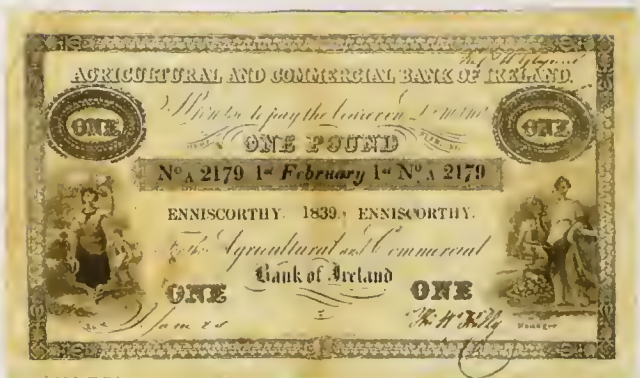 AGRICULTURAL AND COMMERCIAL BANK OF IRELAND.
to pay the bearer on Demand
ONE ONE POUND ONE
No A 2179 1st February 1st No A 2179
ENNISCORTHY. 1839. ENNISCORTHY.
For the Agricultural and Commercial
Bank of Ireland
ONE ONE
James
Manager